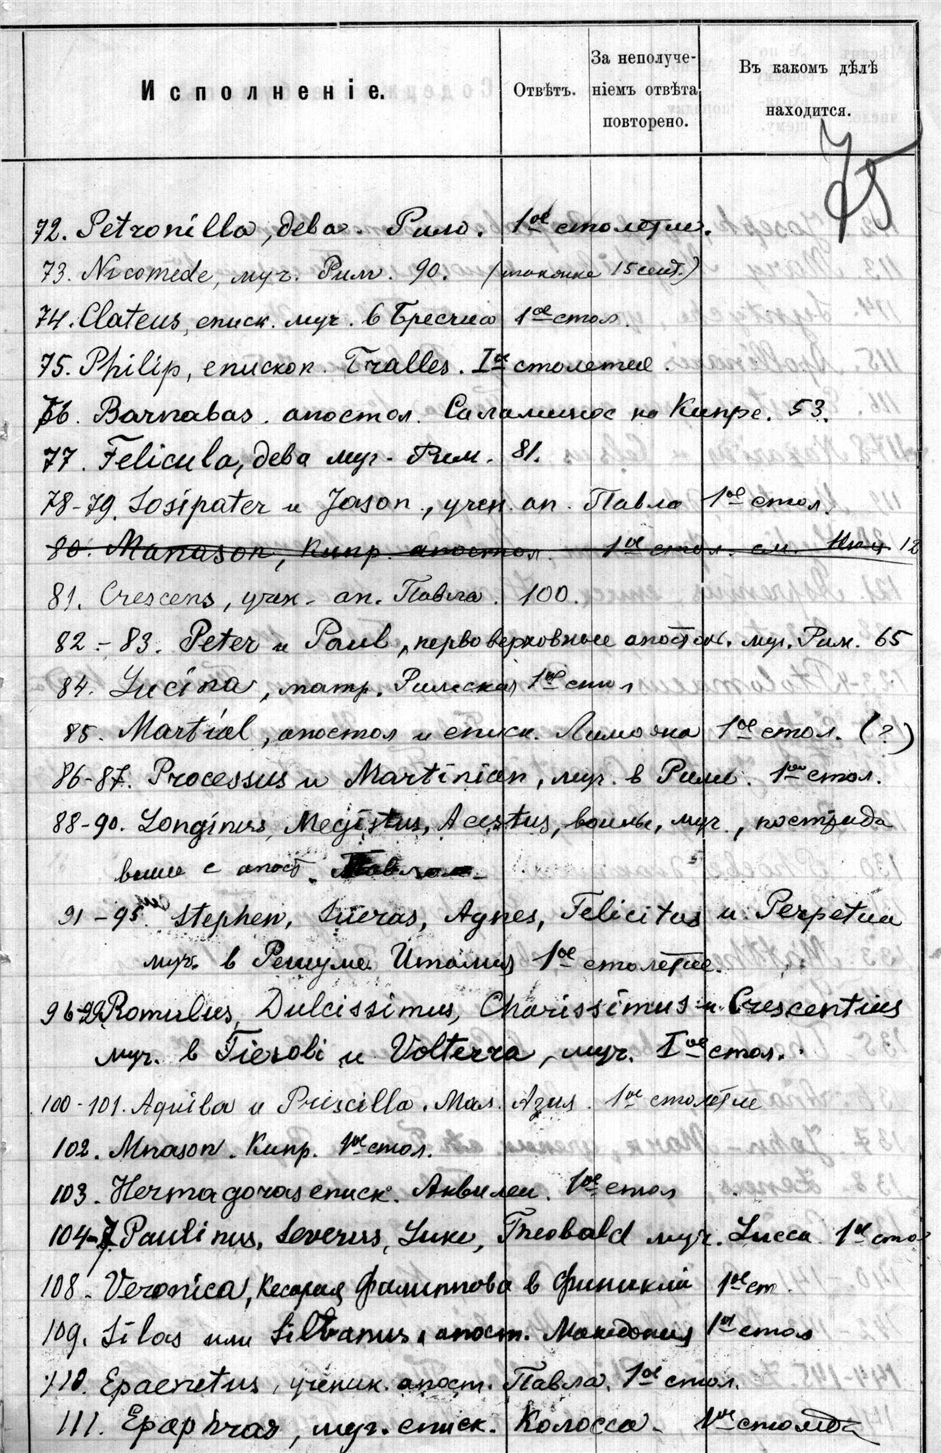 Исполненіе.
Отвѣтъ.
За неполуче-
ніемъ отвѣта
повторено.
Въ какомъ дѣлѣ
находится.
75
72. Petronilla, дева. Рим. 1ое столетие.
73. Nicomede, муч. Рим. 90. (также 15 сент.)
74. Clateus, еписк. муч. в Бресчиа 1ое стол.
75. Philip, епископ. Tralles. Iое столетие.
76. Barnabas. апостол. Саламинос на Кипре. 53.
77. Felicula, дева муч. Рим. 81.
78-79. Sosipater и Jason, учен. ап. Павла 1ое стол.
80. Manason, Кипр. апостол. 1ое стол. см. 12
81. Crescens, учен. ап. Павла. 100.
82-83. Peter и Paul, первоверховные апостол. муч. Рим. 65
84. Lucina, матр. Римская 1ое стол
85. Martial, апостол и еписк. Лиможа 1ое стол. (?)
86-87. Processus и Martinian, муч. в Риме. 1ое стол.
88-90. Longinus, Megistus, Acestus, воины, муч., пострада
вшие с апост. Павлом
91-95. Stephen, Sucras, Agnes, Felicitas и Perpetua
муч. в Италия 1ое столетие.
96-99 Romulus, Dulcissimus, Charissimus и Crescentius
муч. в Fiesoli и Volterra, муч. Iое стол.
100-101. Aquila и Priscilla. Мал. Азия. 1ое столетие
102. Mnason. Кипр. 1ое стол.
103. Hermagoras еписк. Аквилеи. 1ое стол
104-7 Paulinus, Severus, Luke, Theobald муч. Lucca 1ое стол
108. Veronica, Кесария Филиппова в Финикии 1ое ст.
109. Silas или Silvanus, апост. Македония 1ое стол
110. Epaenetus, ученик. апост. Павла. 1ое стол.
111. Epaphras, муч. еписк. Колосса. 1ое столет